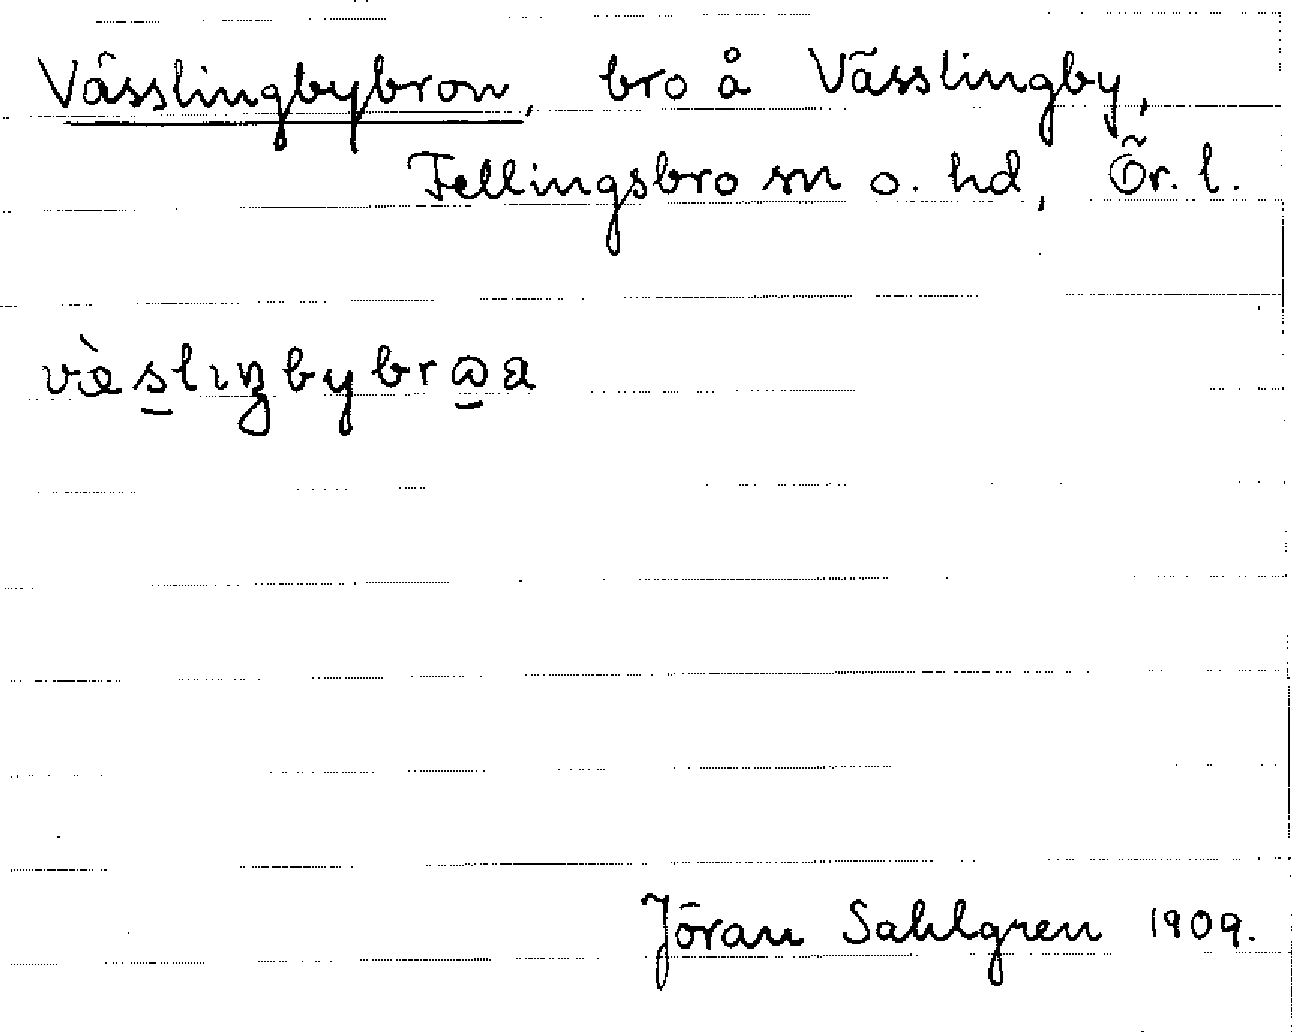 Vässlingbybron, bro å Vässlingby,
Fellingsbro sn o. hd, Ör. l.
væ̀s̲lıŋbybrɷ̲a
Jöran Sahlgren 1909.